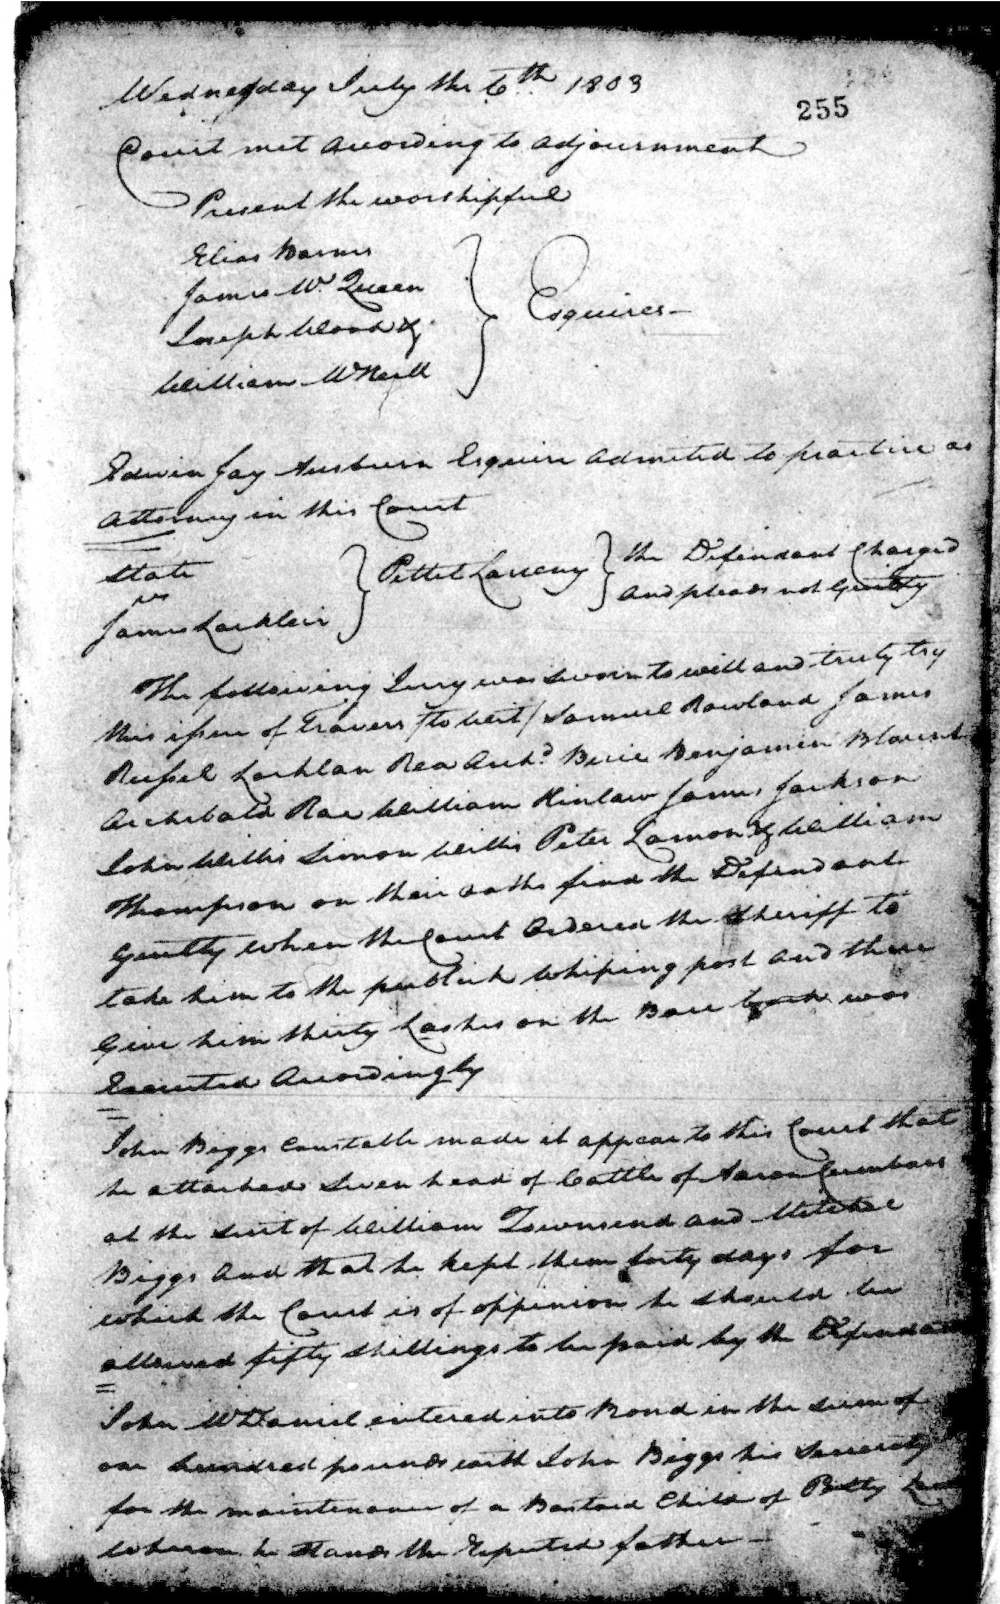 Wednesday July the 6th 1803
255
Court met according to adjournment
Present the worshipfull
Elias Barnes
James Mc Queen
Joseph Wood &
William McNeill
Esquires
Edwin Jay Ausburn Esquire admited to practice as
Attorney in this Court
State
vs
James Lochlier
Pettet Larceny
the Defendant Charged
and pleads not Guilty
The following Jury was sworn to will and truly try
this issue of Travers (to wit) Samuel Rowland James
Russel Lochlan Rea Archd. Benjamin Blount
Archibald Rae William Kinlaw James Jackson
John Willis Simon Willis Peter Lamon & William
Thompson on their oaths find the Defendant
Guilty when the Court Ordered the Sheriff to
take him to the publick Whiping post and there
Give him thirty Lashes on the Bare back was
Executed Accordingly
John Biggs Constable made it appear to this Court that
he attached Seven head of Cattle of Aaron
at the suit of William Townsend and
Biggs and that he kept them forty days for
which the Court is of oppinion he should be
allowed fifty shillings to be paid by the Defendant
John McDaniel entered into Bond in the sum of
one hundred pounds with John Biggs his Security
for the maintenance of a Bastard Child of
whereon he stands the Reputed father